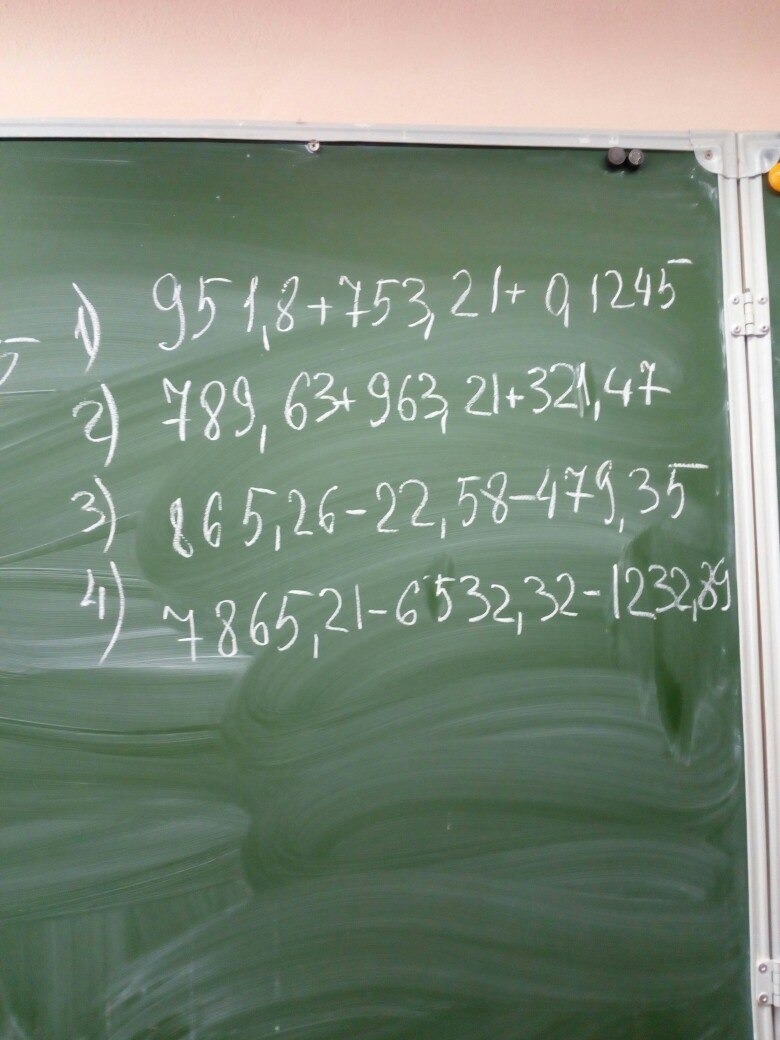 1) 951,8+753,21+0,1245
2) 789,63+963,21+321,47
3) 865,26-22,58-479,35
4) 7865,21-6532,32-1232,89